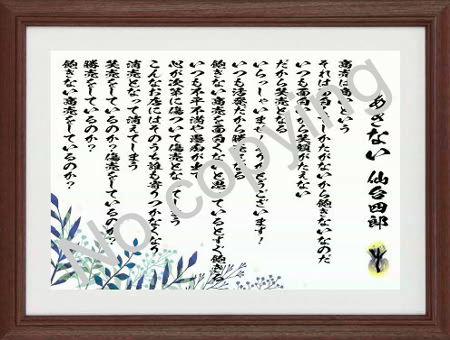 あきない 仙台四郎
商売に商いという
それは面白くてしかたがないから飽きないなのだ
いつも面白いから笑顔がたえない
だから笑売となる
いらっしゃいませ!ありがとうございます!
いつも活発だから勝売になる
飽きない商売を面白くないと思っているとすぐ飽きる
いつも不平不満や愚痴が出て
心が次第に傷ついて傷売となってしまう
こんなお店にはそのうち誰も寄りつかなくなり
消売となって消えてしまう
笑売をしているのか?傷売をしているのか?
勝売をしているのか?
飽きない商売をしているのか?
No copying